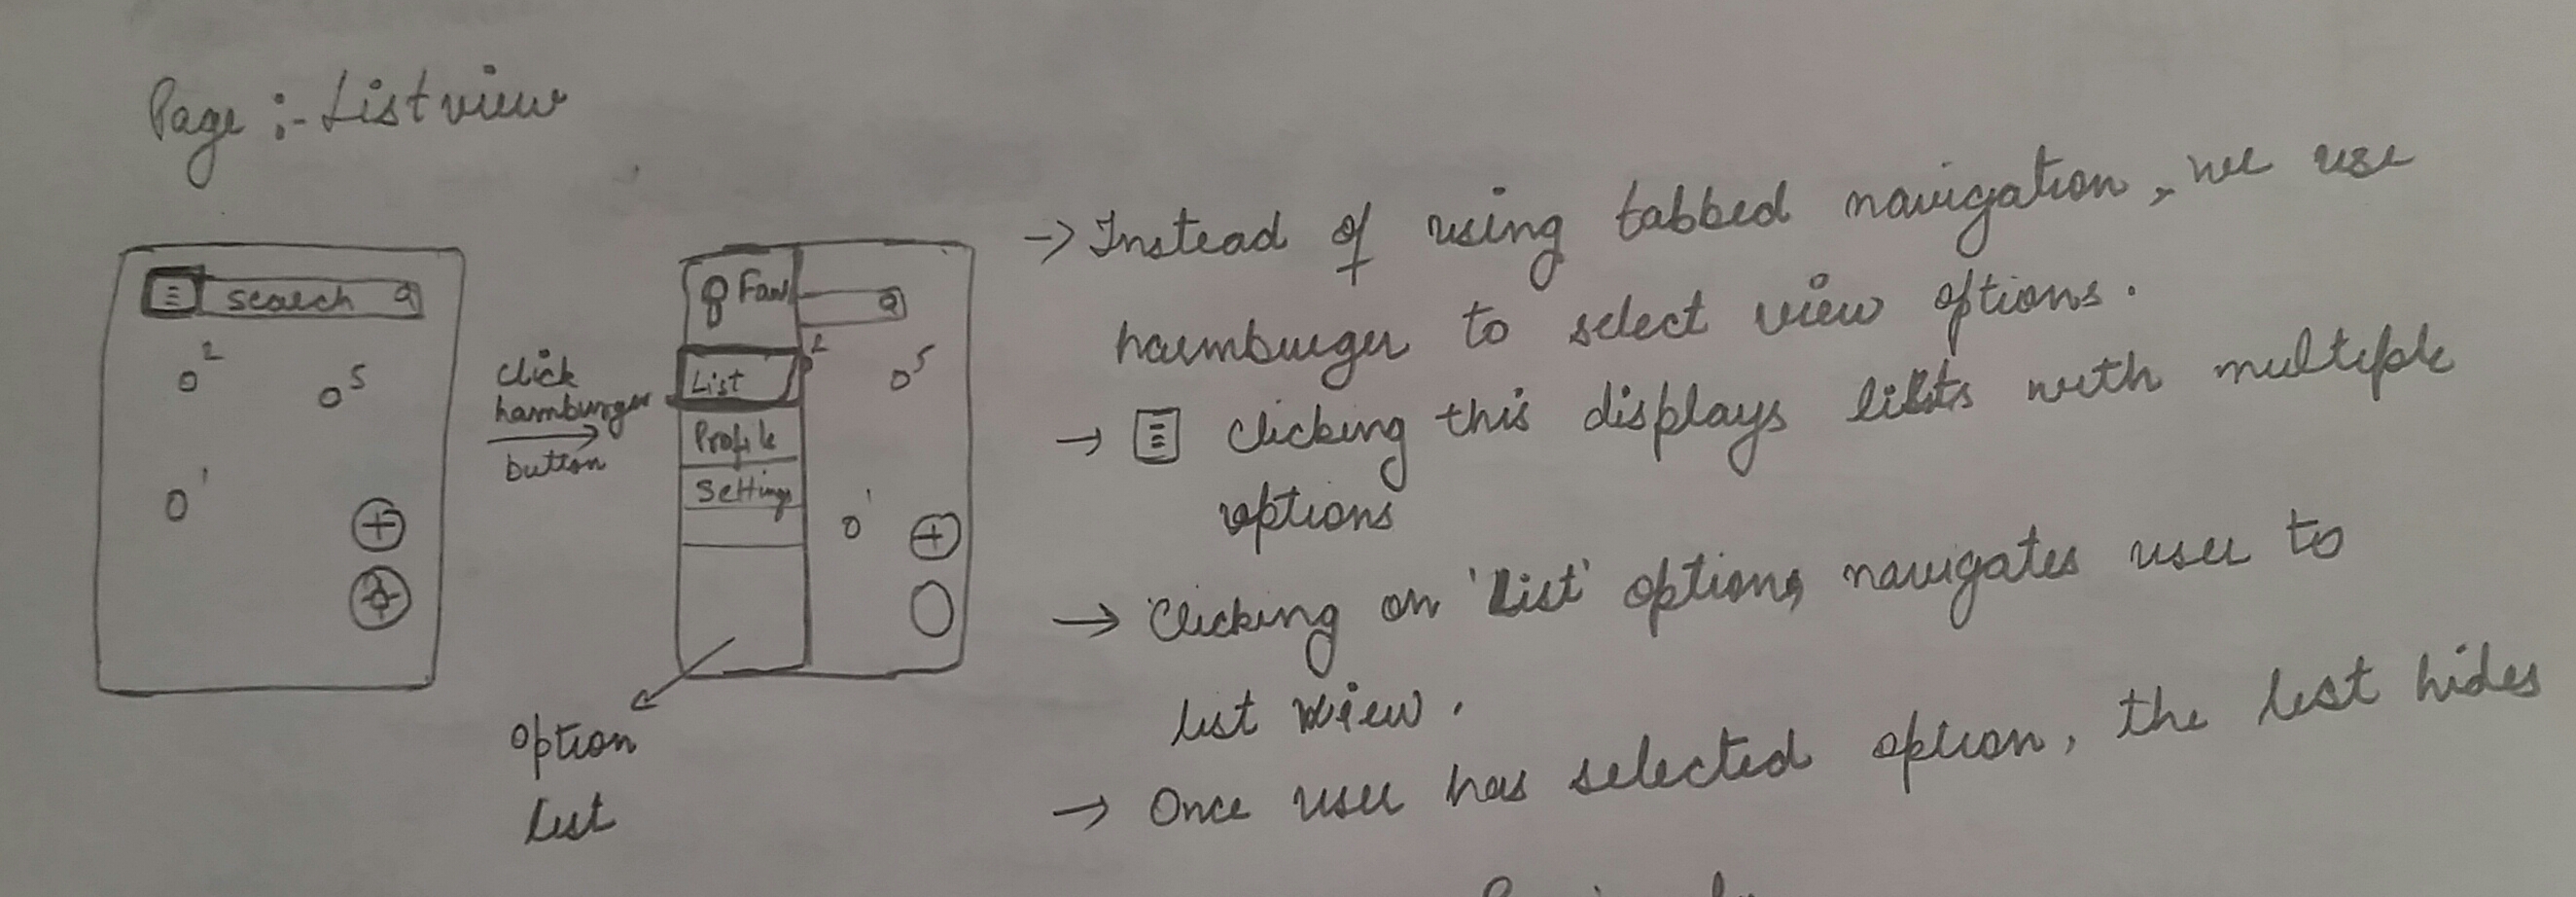 Page :- List view
search
2
5
1
click
hamburger
button
Faw
List
Profile
Settings
2
5
1
option
list
→ Instead of using tabbed navigation, we use
hamburger to select view options.
→ clicking this displays lists with multiple
options
→ Clicking on 'List' option, navigates user to
list view.
→ Once user has selected option, the list hides